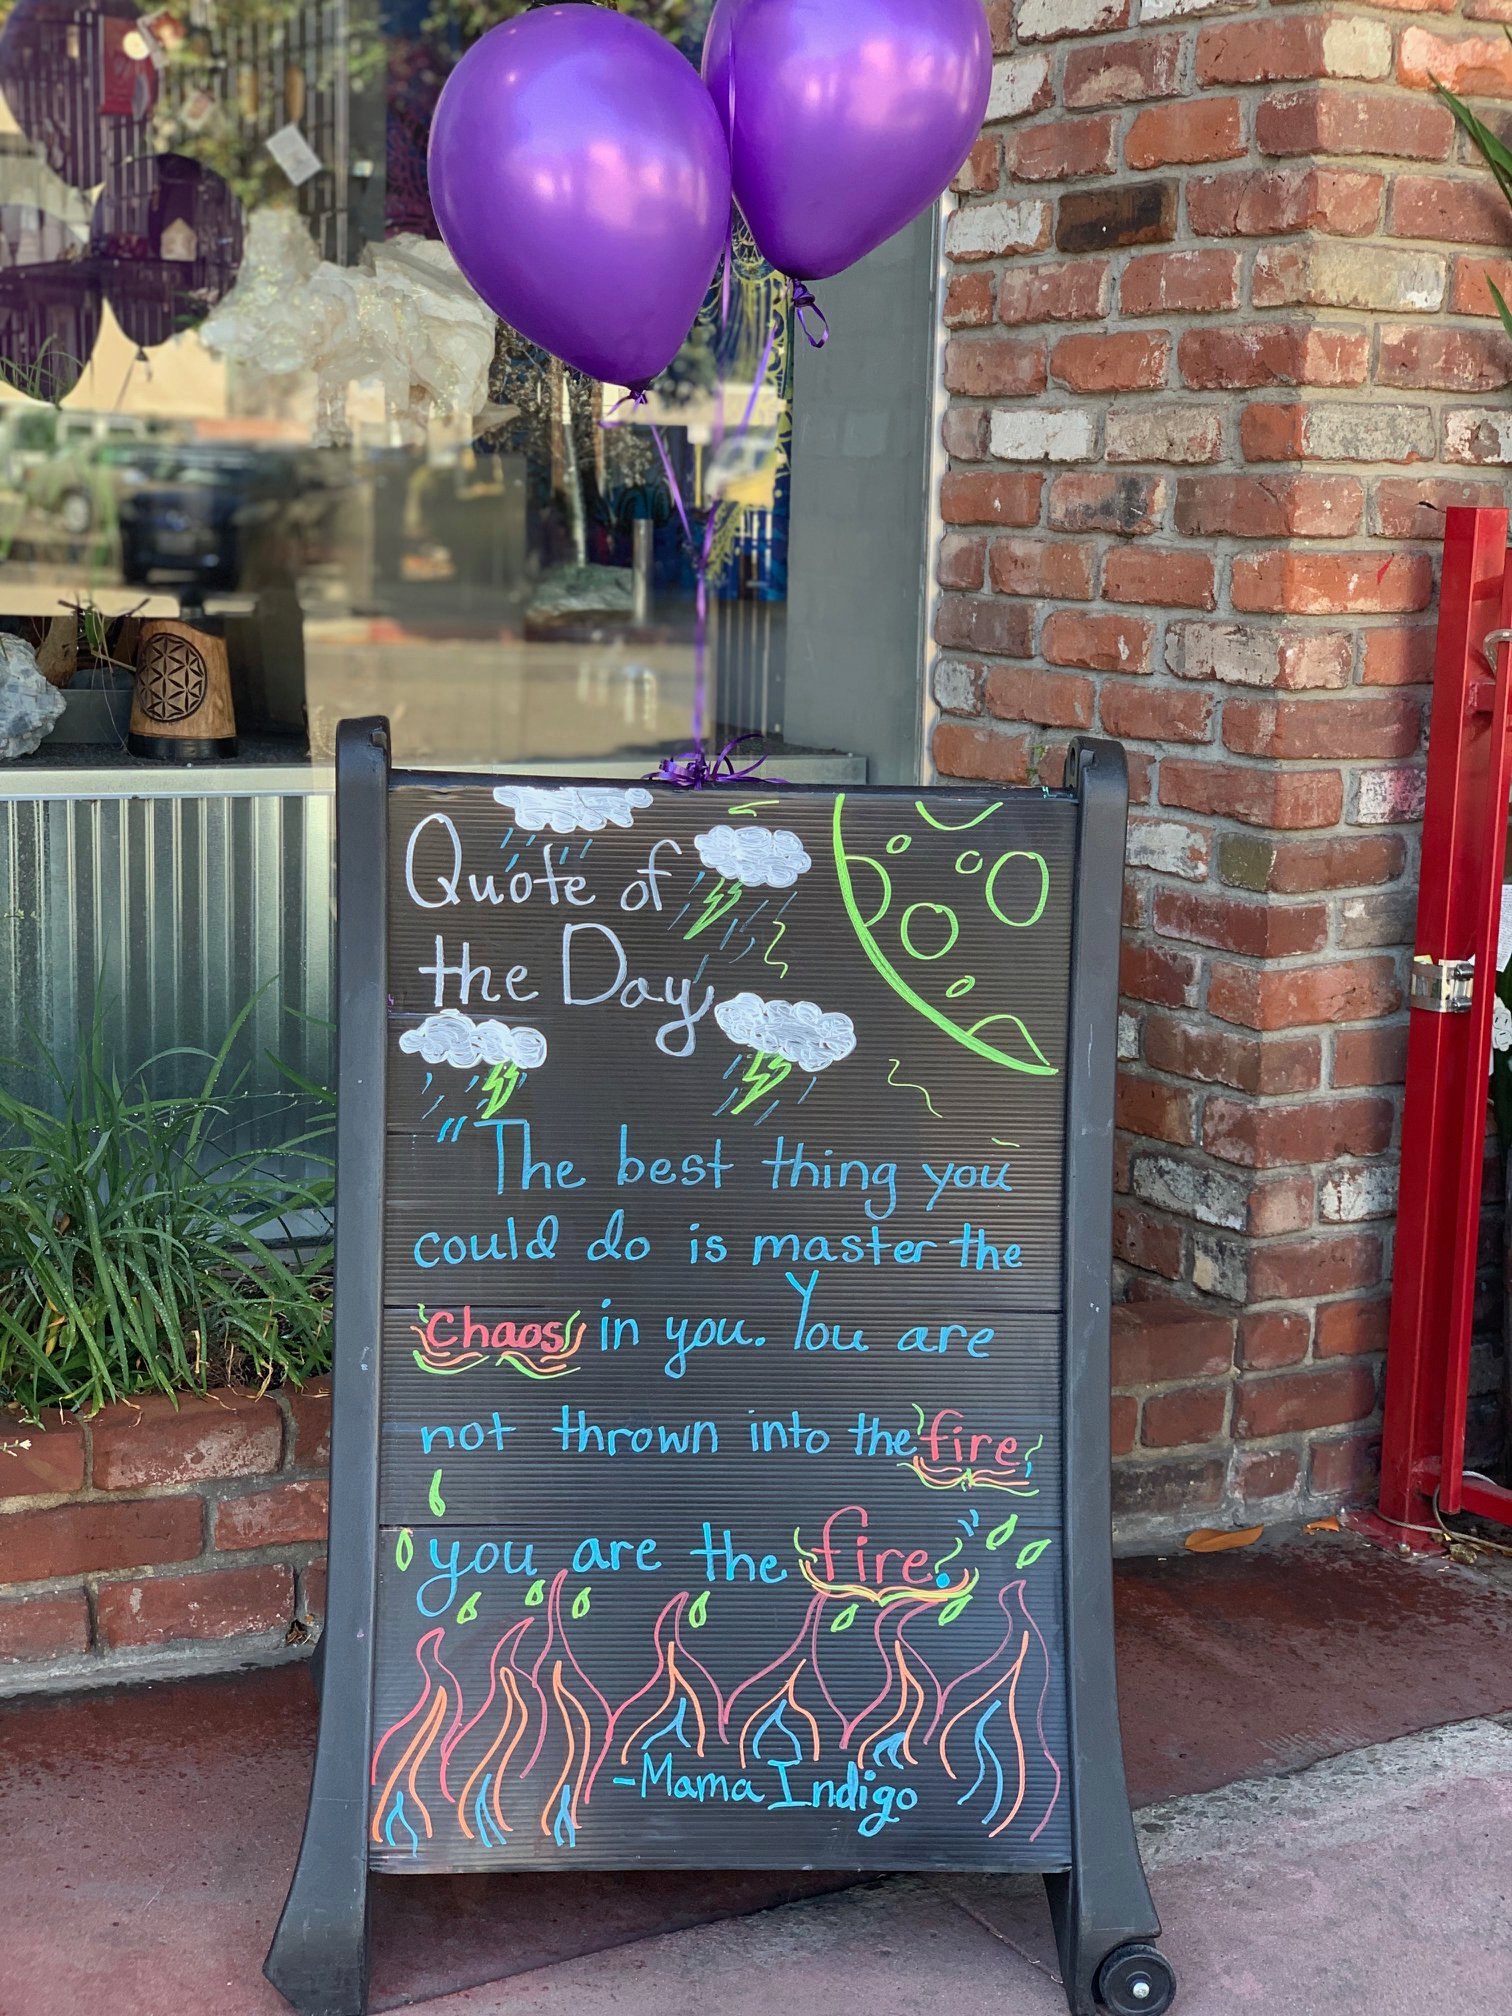 Quote of
the Day
"The best thing you
could do is master the
Chaos in you. You are
not thrown into the fire,
you are the fire."
-Mama Indigo